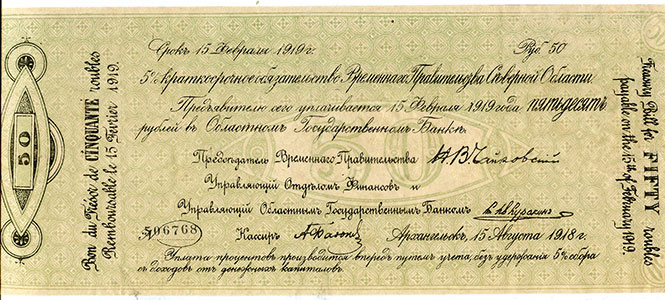 Срокъ 15 Февраля 1919 г. Руб. 50
5% краткосрочное обязательство Временнаго Правительства Сѣверной Области
Предъявителю сего уплачивается 15 Февраля 1919 года пятьдесятъ
рублей въ Областномъ Государственномъ Банкѣ.
Предсѣдатель Временнаго Правительства Н В Чайковский
Управляющій Отдѣломъ Финансовъ и
Управляющій Областнымъ Государственнымъ Банкомъ
№ 06768 Кассиръ Архангельскъ, 15 Августа 1918 г.
Уплата процентовъ производится впередъ путемъ учета, безъ удержанія 5% сбора
съ доходовъ отъ денежныхъ капиталовъ.
50
Bon du Trésor de CINQUANTE roubles
Remboursable le 15 Février 1919.
Treasury Bill for FIFTY roubles
payable on the 15th of February 1919.
50